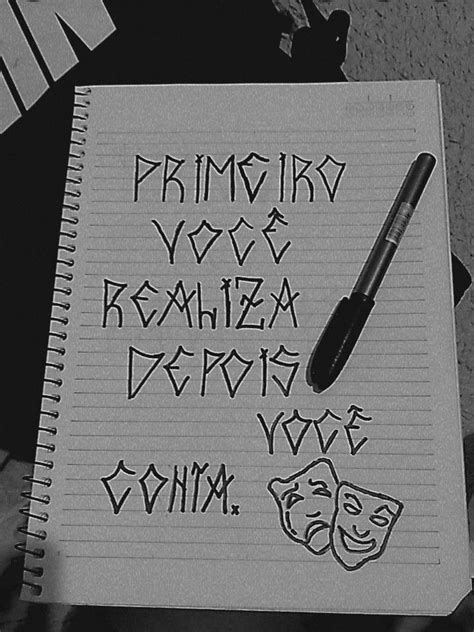 PRIMEIRO
VOCÊ
REALIZA
DEPOIS
VOCÊ
CONTA.